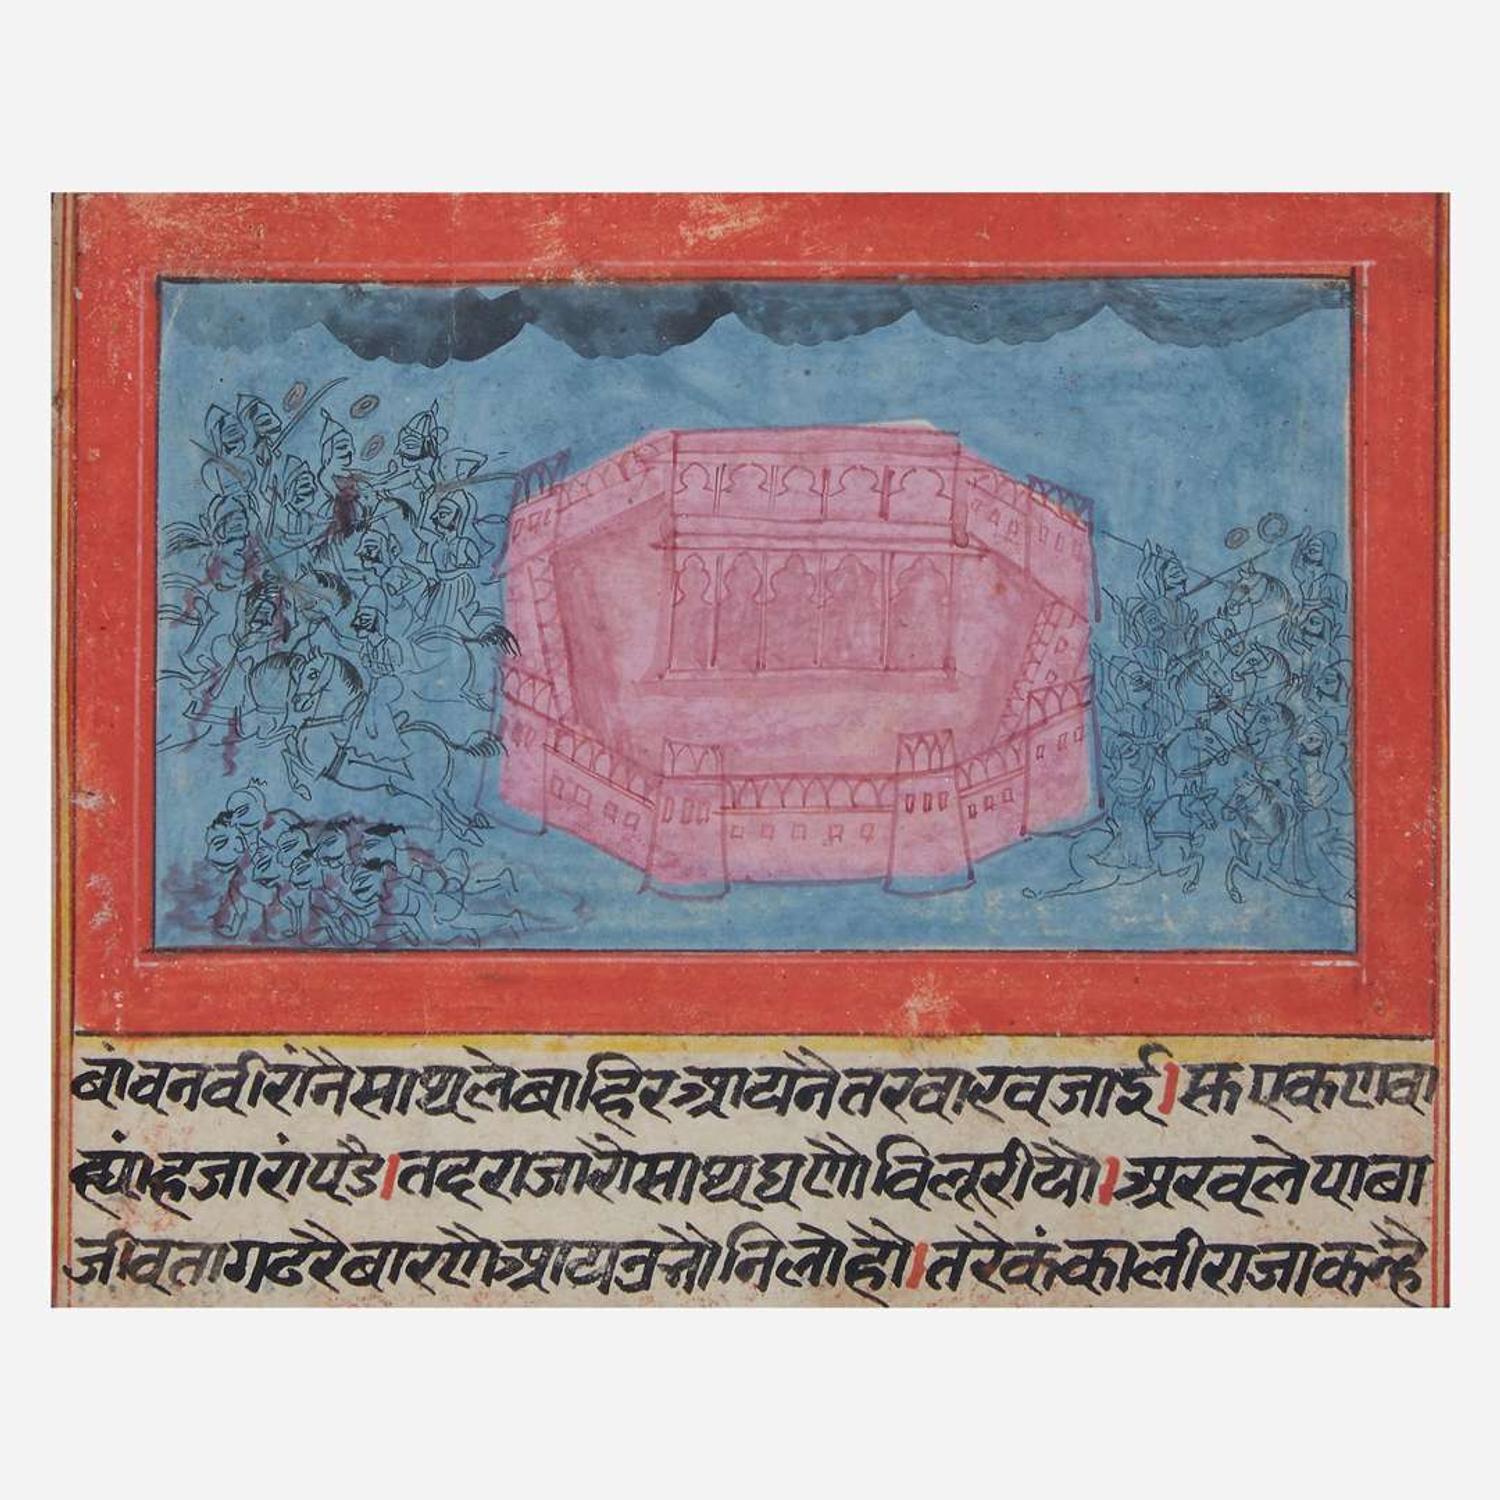 बांवनवीरांनैसाथलेबाहिरआयनैतरवारवजाई।रूकएकणवा
ह्यांहजारांपडै।तदराजारौसाथघणौविलूरीयौ।अरवलेपाबा
जीवतागढरैबारणैआयनत्रौनिलोहौ।तरैकंकालीराजाकन्है